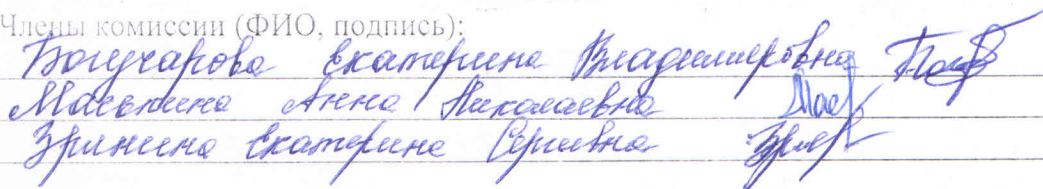 Члены комиссии (ФИО, подпись):
Бочкарова Екатерина Владимировна
Маськина Анна Николаевна
Зрянина Екатерина Сергеевна